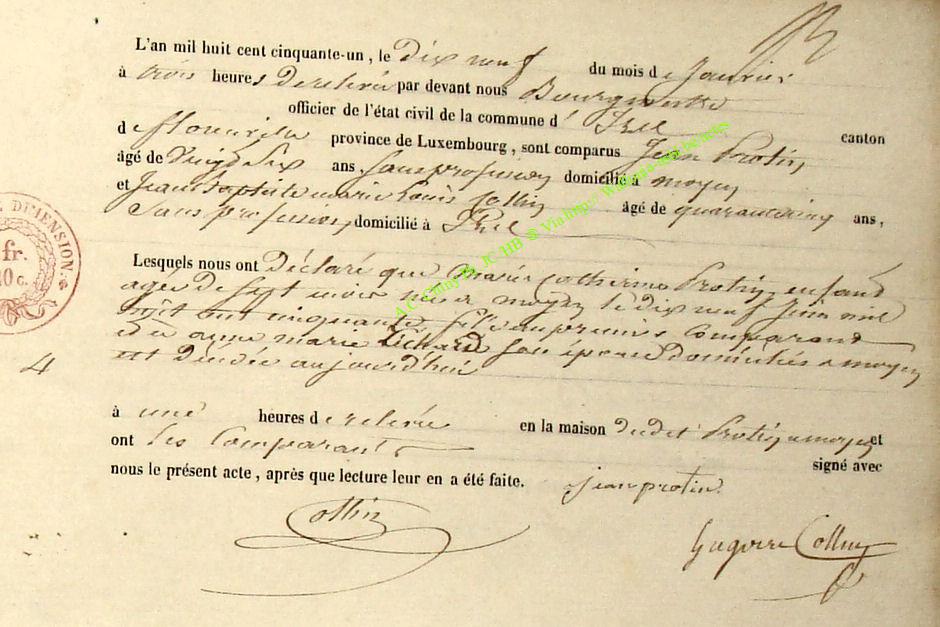 L'an mil huit cent cinquante-un, le dix neuf du mois de Janvier
à trois heures de relevée par devant nous Bourgmestre
officier de l'état civil de la commune d' Izel canton
de florenville province de Luxembourg, sont comparus Jean Protin
âgé de vingt six ans, sans profession domicilié à moyen
et Jean baptiste marie Louis Collin âgé de quarante cinq ans,
Sans profession, domicilié à Izel
Lesquels nous ont Déclaré que Marie Catherine Protin, enfant
agée de sept mois née a moyen le dix neuf Juin mil
huit cent cinquante, fille du premier Comparant
et de anne marie Lichard son épouse Domiciliés a moyen
est décédée aujourd'hui
à une heures de relevée en la maison dudit Protin a moyen et
ont les Comparants signé avec
nous le présent acte, après que lecture leur en a été faite.
jean protin
Collin
Grégoire Collin
4
fr.